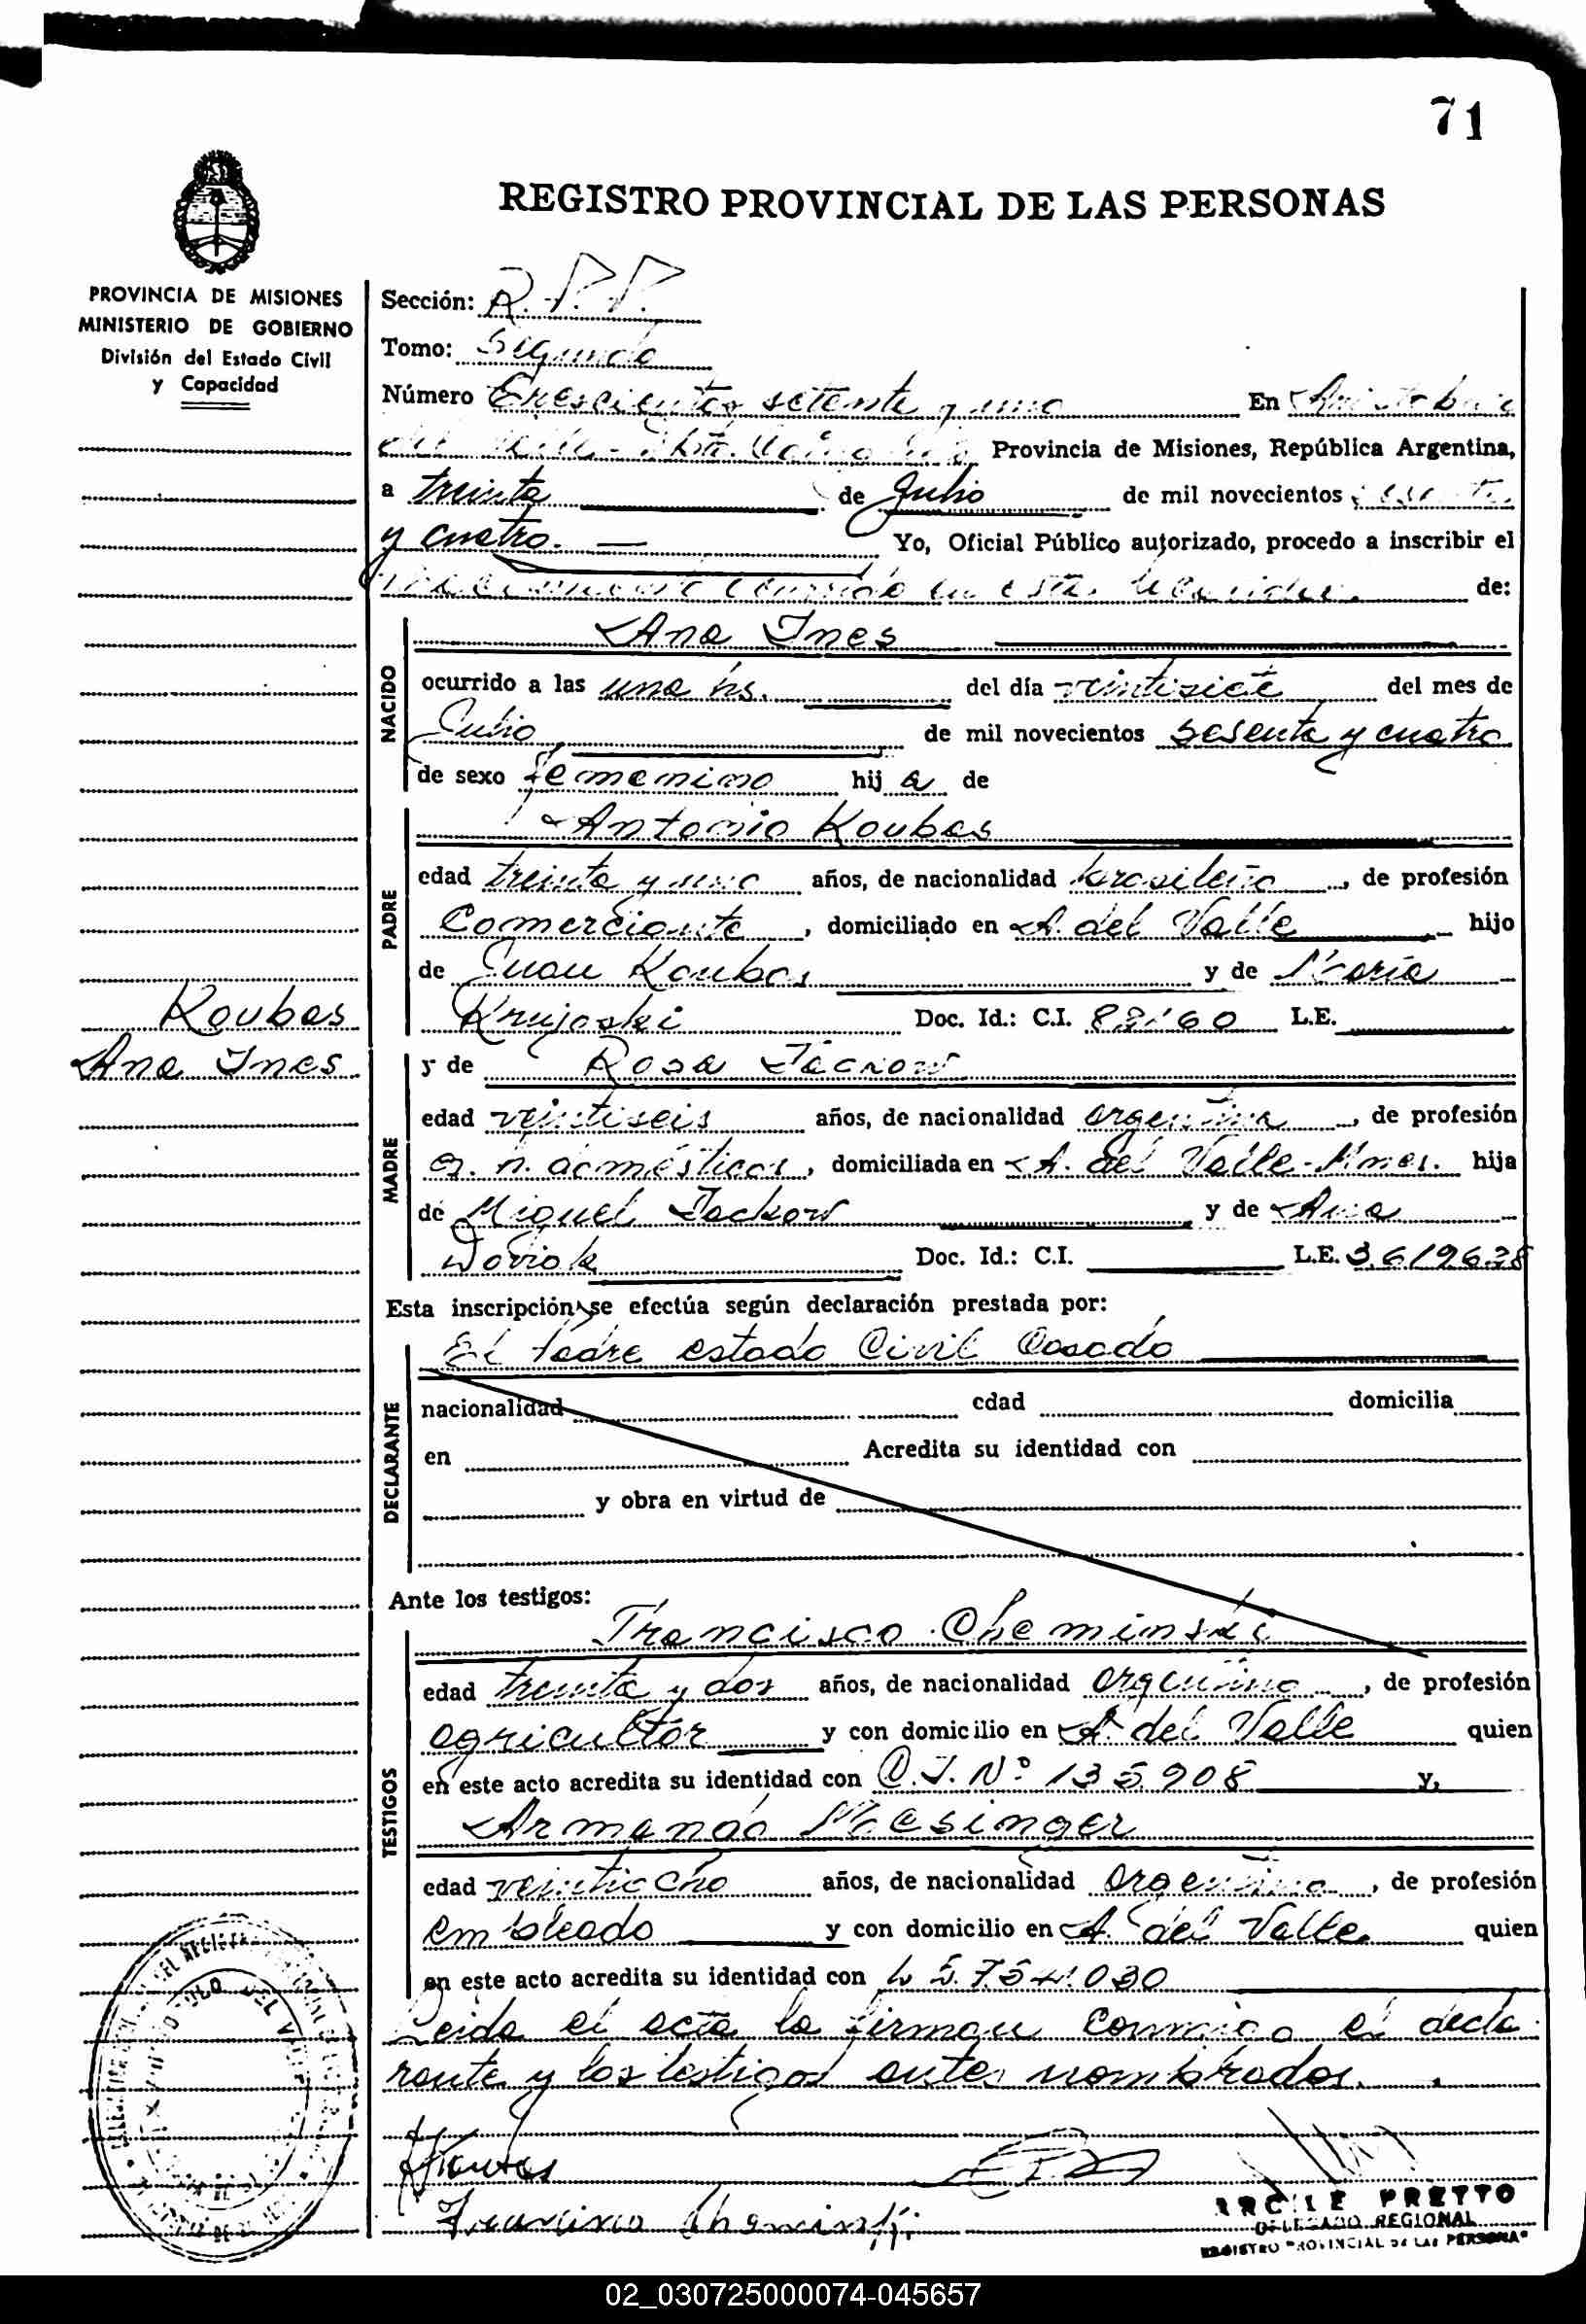 71
REGISTRO PROVINCIAL DE LAS PERSONAS
PROVINCIA DE MISIONES
MINISTERIO DE GOBIERNO
División del Estado Civil
y Capacidad
Sección: R.P.P.
Tomo: Segundo
Número Trescientos setenta y uno En Aristobulo
del Valle - Provincia de Misiones, República Argentina,
a treinta de Julio de mil novecientos sesenta
y cuatro. — Yo, Oficial Público autorizado, procedo a inscribir el
nacimiento ocurrido en esta de:
NACIDO
Ana Ines
ocurrido a las una hs. del día veintisiete del mes de
Julio de mil novecientos sesenta y cuatro
de sexo femenino hij a de
PADRE
Antonio Koubas
edad treinta y uno años, de nacionalidad brasileño, de profesión
Comerciante, domiciliado en A. del Valle hijo
de Juan Koubas y de María
Krujoski Doc. Id.: C.I. L.E.
Koubas
Ana Ines
MADRE
y de Rosa Tackow
edad veintiseis años, de nacionalidad argentina, de profesión
q. h. domésticos, domiciliada en A. del Valle - Mnes. hija
de Miguel Tackow y de Ana
Woviok Doc. Id.: C.I. L.E. 3.619.628
Esta inscripción se efectúa según declaración prestada por:
DECLARANTE
El Padre estado Civil Casado
nacionalidad edad domicilia
en Acredita su identidad con
y obra en virtud de
Ante los testigos:
TESTIGOS
Francisco Cheminski
edad treinta y dos años, de nacionalidad argentino, de profesión
agricultor y con domicilio en A. del Valle quien
en este acto acredita su identidad con C.I. Nº 135908 y,
Armando Messinger
edad veintiocho años, de nacionalidad argentino, de profesión
empleado y con domicilio en A. del Valle quien
en este acto acredita su identidad con 7.541.030
Leida el acta la firman conmigo el decla
rante y los testigos antes nombrados.
Koubas
Francisco Cheminski
PRETTO
DELEGADO REGIONAL
REGISTRO "PROVINCIAL DE LAS PERSONA"
02_030725000074-045657